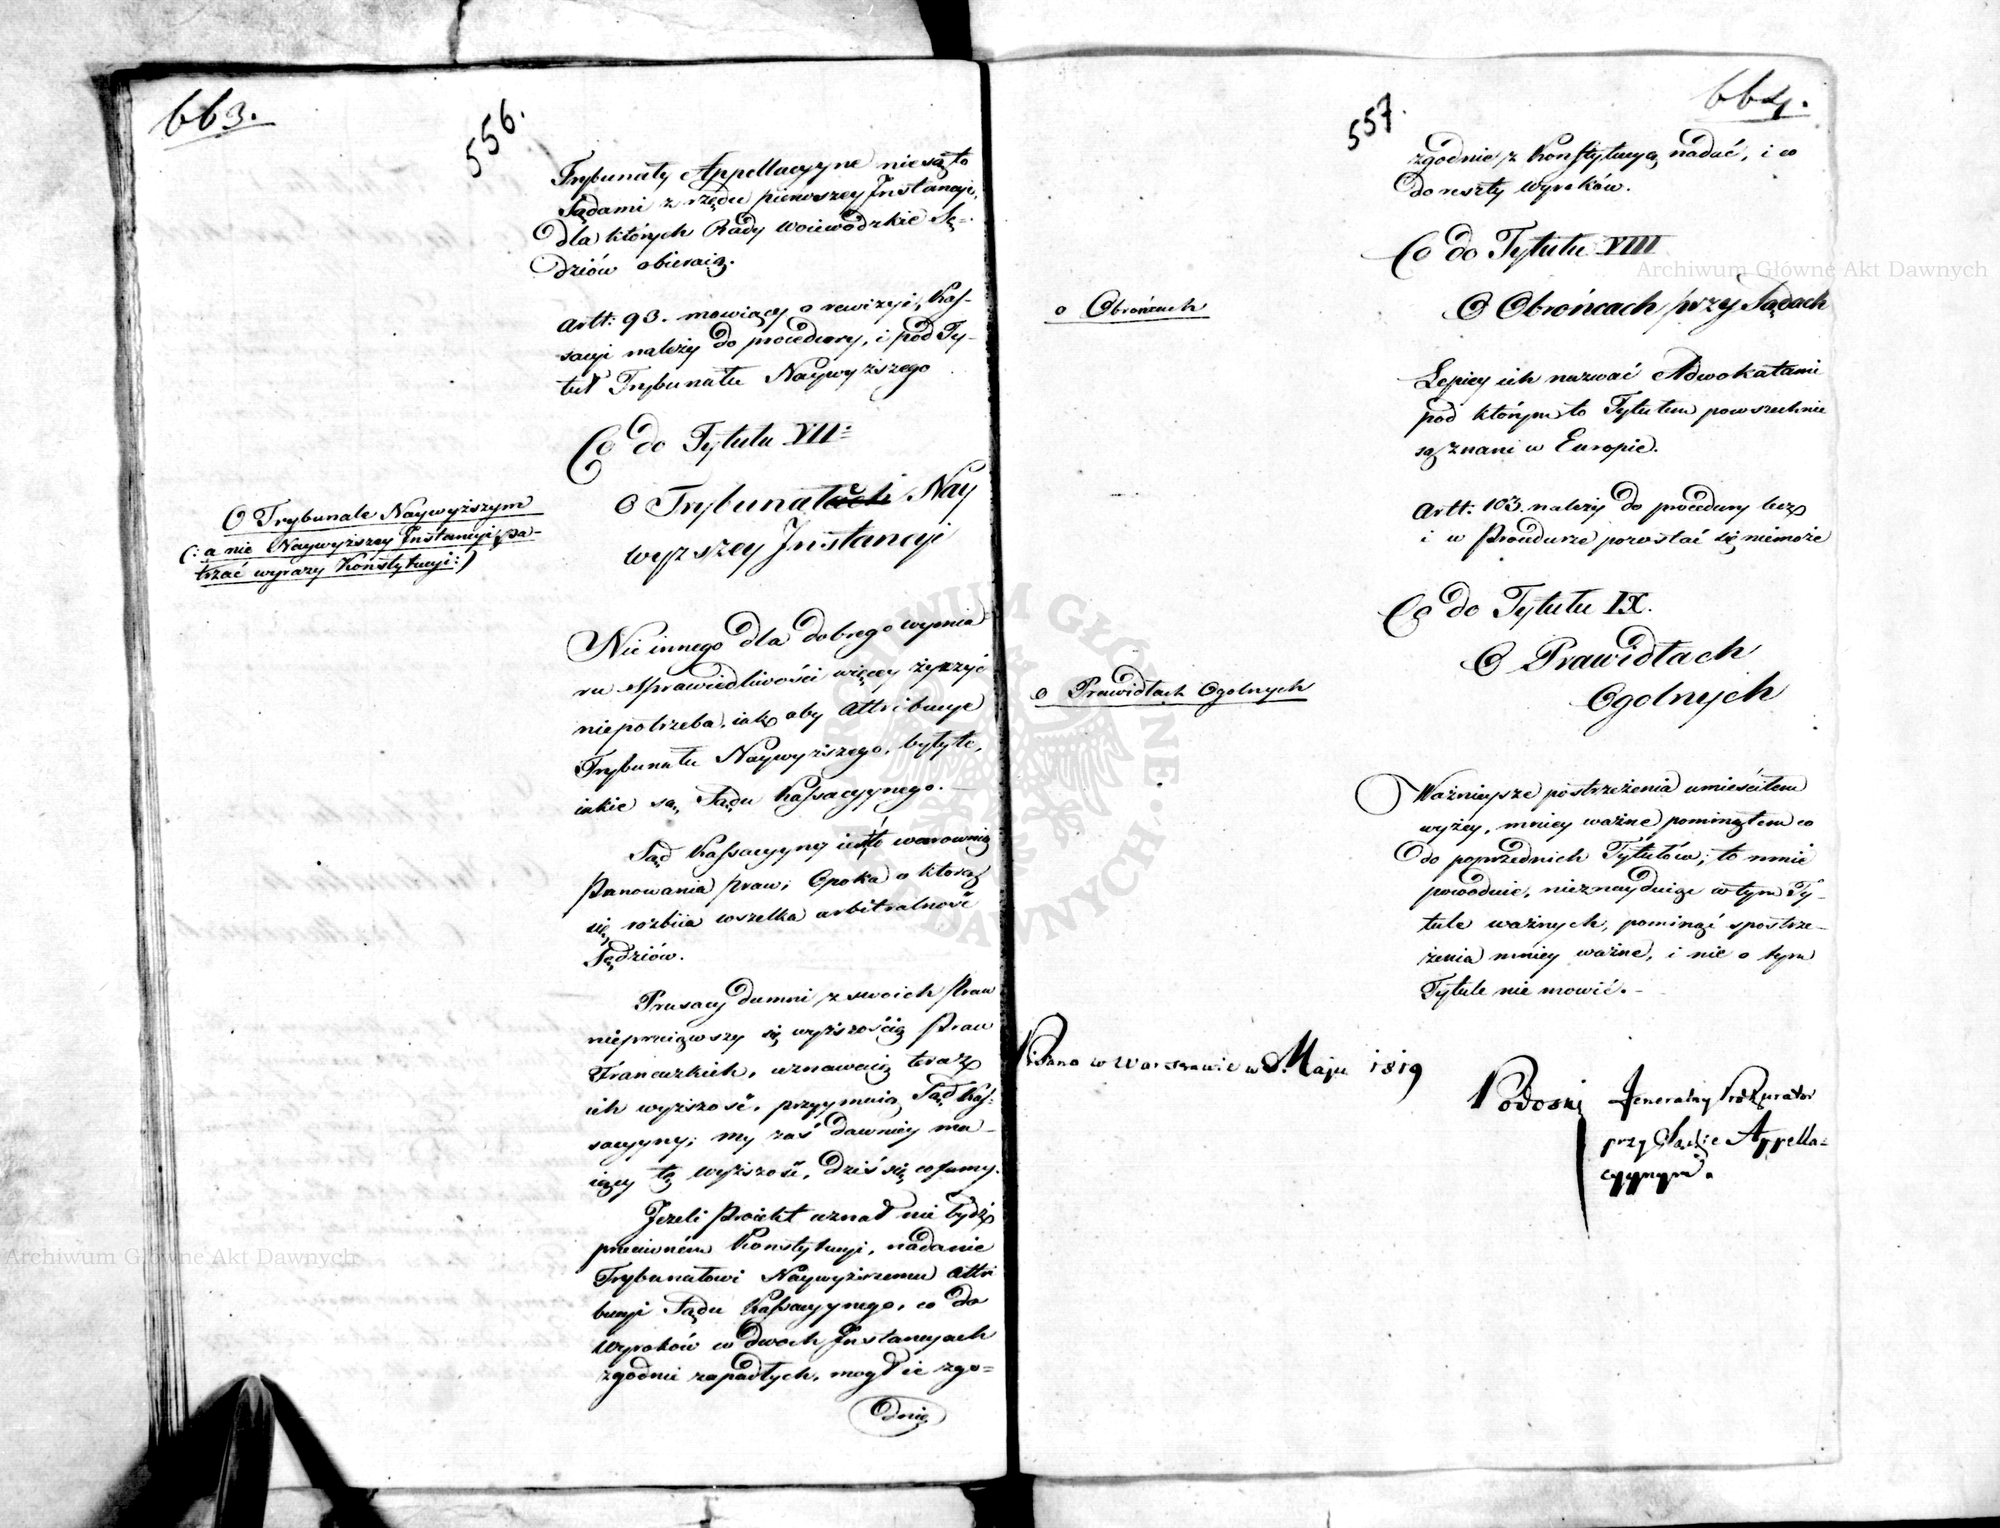 663.
556.
Trybunały Appellacyyne niesą to
Sądami z rzędu pierwszey Instancji,
dla których Rady Woiewodzkie Sę-
dziów obieraią.
Artt: 93. mowiący o rewizyi, Kas-
sacyi należy do procedury, i pod Ty-
tuł Trybunału Naywyższego
Co do Tytułu VII:
O Trybunale Nay
wyższey Instancji
O Trybunale Naywyższym
(: a nie Naywyższey Instancyi; pa-
trzać wyrazy Konstytucyi :)
Nic innego dla dobrego wymia-
ru sprawiedliwości więcey życzyć
niepotrzeba, iak aby attribucye
Trybunału Naywyższego, były te,
iakie są Sądu Kassacyynego.
Sąd Kassacyyny iest to warownią
Panowania praw; Opoka o którą
się rozbiia wszelka arbitralność
Sędziów.
Prusacy dumni z swoich Praw
nieprzeiąwszy się wyższością Praw
Francuzkich, uznawaią teraz
ich wyższość, przyymuią Sąd Kas-
sacyyny; my zaś dawniey ma-
iący tę wyższość, dziś się cofamy.
Jeżeli Proiekt uznał nie bydź
przeciwném Konstytucyi, nadanie
Trybunałowi Naywyższemu attri
bucyi Sądu Kassacyynego, co do
wyroków w dwoch Instancyach
zgodnie zapadłych, mogł ie zgo=
dnie
557.
664.
zgodnie z Konstytucyą nadać, i co
do reszty wyroków.
Co do Tytułu VIII
O Obrońcach przy Sądach
o Obrońcach
Lepiey ich nazwać Adwokatami
pod którym to Tytułem powszechnie
są znani w Europie.
Artt: 103. należy do procedury lecz
i w Procedurze pozostać się niemoże
Co do Tytułu IX.
O Prawidłach
Ogolnych
o Prawidłach Ogolnych
Ważnieysze postrzeżenia umieściłem
wyżey, mniey ważne pominąłem co
do poprzednich Tytułów; to mnie
powoduie, nieznayduiąc w tym Ty-
tule ważnych, pominąć spostrze-
żenia mniey ważne, i nic o tym
Tytule nie mowić.-
Pisano w Warszawie w Maju 1819
Podoski Jeneralny Prokurator
przy Sądzie Appella=
cyynym.
Archiwum Główne Akt Dawnych
Archiwum Główne Akt Dawnych
ARCHIWUM GŁÓWNE AKT DAWNYCH